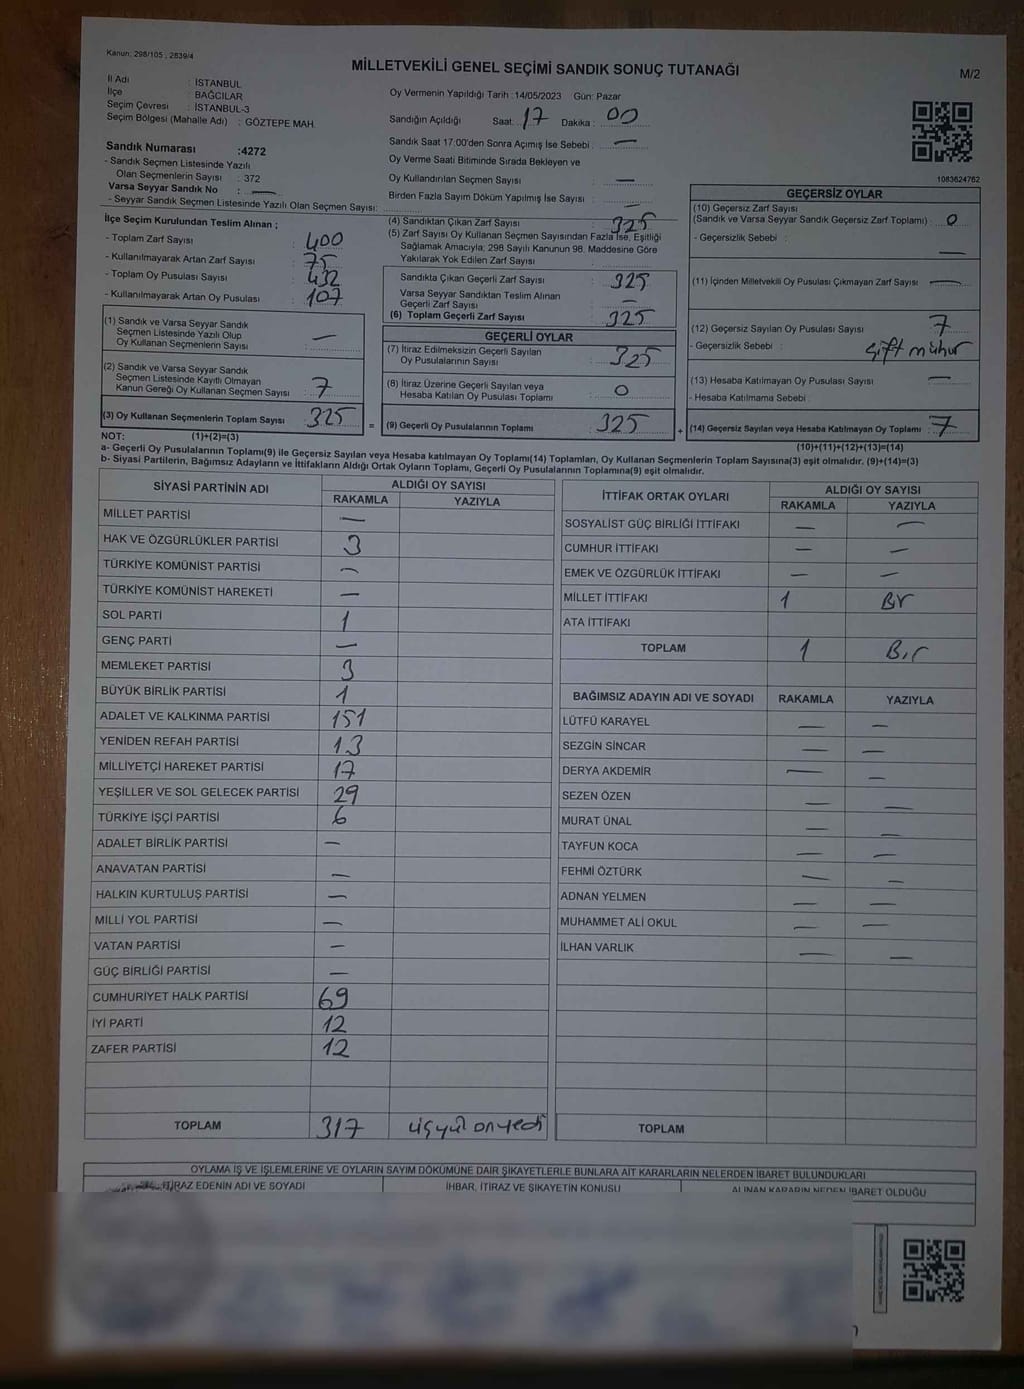 Kanun: 298/105 ; 2839/4
MİLLETVEKİLİ GENEL SEÇİMİ SANDIK SONUÇ TUTANAĞI
M/2
İl Adı : İSTANBUL
İlçe : BAĞCILAR
Seçim Çevresi : İSTANBUL-3
Seçim Bölgesi (Mahalle Adı) : GÖZTEPE MAH.
Oy Vermenin Yapıldığı Tarih :14/05/2023 Gün: Pazar
Sandığın Açıldığı Saat: 17 Dakika : 00
Sandık Saat 17:00'den Sonra Açımış İse Sebebi : —
Oy Verme Saati Bitiminde Sırada Bekleyen ve
Oy Kullandırılan Seçmen Sayısı : —
Birden Fazla Sayım Döküm Yapılmış İse Sayısı : —
Sandık Numarası :4272
- Sandık Seçmen Listesinde Yazılı
Olan Seçmenlerin Sayısı : 372
Varsa Seyyar Sandık No : —
- Seyyar Sandık Seçmen Listesinde Yazılı Olan Seçmen Sayısı:
1083624762
İlçe Seçim Kurulundan Teslim Alınan ;
- Toplam Zarf Sayısı : 400
- Kullanılmayarak Artan Zarf Sayısı : 75
- Toplam Oy Pusulası Sayısı : 432
- Kullanılmayarak Artan Oy Pusulası : 107
(1) Sandık ve Varsa Seyyar Sandık
Seçmen Listesinde Yazılı Olup
Oy Kullanan Seçmenlerin Sayısı : —
(2) Sandık ve Varsa Seyyar Sandık
Seçmen Listesinde Kayıtlı Olmayan
Kanun Gereği Oy Kullanan Seçmen Sayısı : 7
(3) Oy Kullanan Seçmenlerin Toplam Sayısı : 325
(4) Sandıktan Çıkan Zarf Sayısı : 325
(5) Zarf Sayısı Oy Kullanan Seçmen Sayısından Fazla İse, Eşitliği
Sağlamak Amacıyla; 298 Sayılı Kanunun 98. Maddesine Göre
Yakılarak Yok Edilen Zarf Sayısı :
Sandıkta Çıkan Geçerli Zarf Sayısı : 325
Varsa Seyyar Sandıktan Teslim Alınan
Geçerli Zarf Sayısı : —
(6) Toplam Geçerli Zarf Sayısı : 325
GEÇERLİ OYLAR
(7) İtiraz Edilmeksizin Geçerli Sayılan
Oy Pusulalarının Sayısı : 325
(8) İtiraz Üzerine Geçerli Sayılan veya
Hesaba Katılan Oy Pusulası Toplamı : 0
= (9) Geçerli Oy Pusulalarının Toplamı : 325
GEÇERSİZ OYLAR
(10) Geçersiz Zarf Sayısı
(Sandık ve Varsa Seyyar Sandık Geçersiz Zarf Toplamı) : 0
- Geçersizlik Sebebi : —
(11) İçinden Milletvekili Oy Pusulası Çıkmayan Zarf Sayısı : —
(12) Geçersiz Sayılan Oy Pusulası Sayısı : 7
- Geçersizlik Sebebi : çift mühür
(13) Hesaba Katılmayan Oy Pusulası Sayısı : —
- Hesaba Katılmama Sebebi :
+ (14) Geçersiz Sayılan veya Hesaba Katılmayan Oy Toplamı : 7
NOT: (1)+(2)=(3)
(10)+(11)+(12)+(13)=(14)
a- Geçerli Oy Pusulalarının Toplamı(9) ile Geçersiz Sayılan veya Hesaba katılmayan Oy Toplamı(14) Toplamları, Oy Kullanan Seçmenlerin Toplam Sayısına(3) eşit olmalıdır. (9)+(14)=(3)
b- Siyasi Partilerin, Bağımsız Adayların ve İttifakların Aldığı Ortak Oyların Toplamı, Geçerli Oy Pusulalarının Toplamına(9) eşit olmalıdır.
SİYASİ PARTİNİN ADI ALDIĞI OY SAYISI
RAKAMLA YAZIYLA
MİLLET PARTİSİ —
HAK VE ÖZGÜRLÜKLER PARTİSİ 3
TÜRKİYE KOMÜNİST PARTİSİ —
TÜRKİYE KOMÜNİST HAREKETİ —
SOL PARTİ 1
GENÇ PARTİ —
MEMLEKET PARTİSİ 3
BÜYÜK BİRLİK PARTİSİ 1
ADALET VE KALKINMA PARTİSİ 151
YENİDEN REFAH PARTİSİ 13
MİLLİYETÇİ HAREKET PARTİSİ 17
YEŞİLLER VE SOL GELECEK PARTİSİ 29
TÜRKİYE İŞÇİ PARTİSİ 6
ADALET BİRLİK PARTİSİ —
ANAVATAN PARTİSİ —
HALKIN KURTULUŞ PARTİSİ —
MİLLİ YOL PARTİSİ —
VATAN PARTİSİ —
GÜÇ BİRLİĞİ PARTİSİ —
CUMHURİYET HALK PARTİSİ 69
İYİ PARTİ 12
ZAFER PARTİSİ 12
TOPLAM 317 üçyüz onyedi
İTTİFAK ORTAK OYLARI ALDIĞI OY SAYISI
RAKAMLA YAZIYLA
SOSYALİST GÜÇ BİRLİĞİ İTTİFAKI — —
CUMHUR İTTİFAKI — —
EMEK VE ÖZGÜRLÜK İTTİFAKI — —
MİLLET İTTİFAKI 1 Bir
ATA İTTİFAKI
TOPLAM 1 Bir
BAĞIMSIZ ADAYIN ADI VE SOYADI RAKAMLA YAZIYLA
LÜTFÜ KARAYEL — —
SEZGİN SİNCAR — —
DERYA AKDEMİR — —
SEZEN ÖZEN — —
MURAT ÜNAL — —
TAYFUN KOCA — —
FEHMİ ÖZTÜRK — —
ADNAN YELMEN — —
MUHAMMET ALİ OKUL — —
İLHAN VARLIK — —
TOPLAM
OYLAMA İŞ VE İŞLEMLERİNE VE OYLARIN SAYIM DÖKÜMÜNE DAİR ŞİKAYETLERLE BUNLARA AİT KARARLARIN NELERDEN İBARET BULUNDUKLARI
İTİRAZ EDENİN ADI VE SOYADI İHBAR, İTİRAZ VE ŞİKAYETİN KONUSU ALINAN KARARIN NEDEN İBARET OLDUĞU